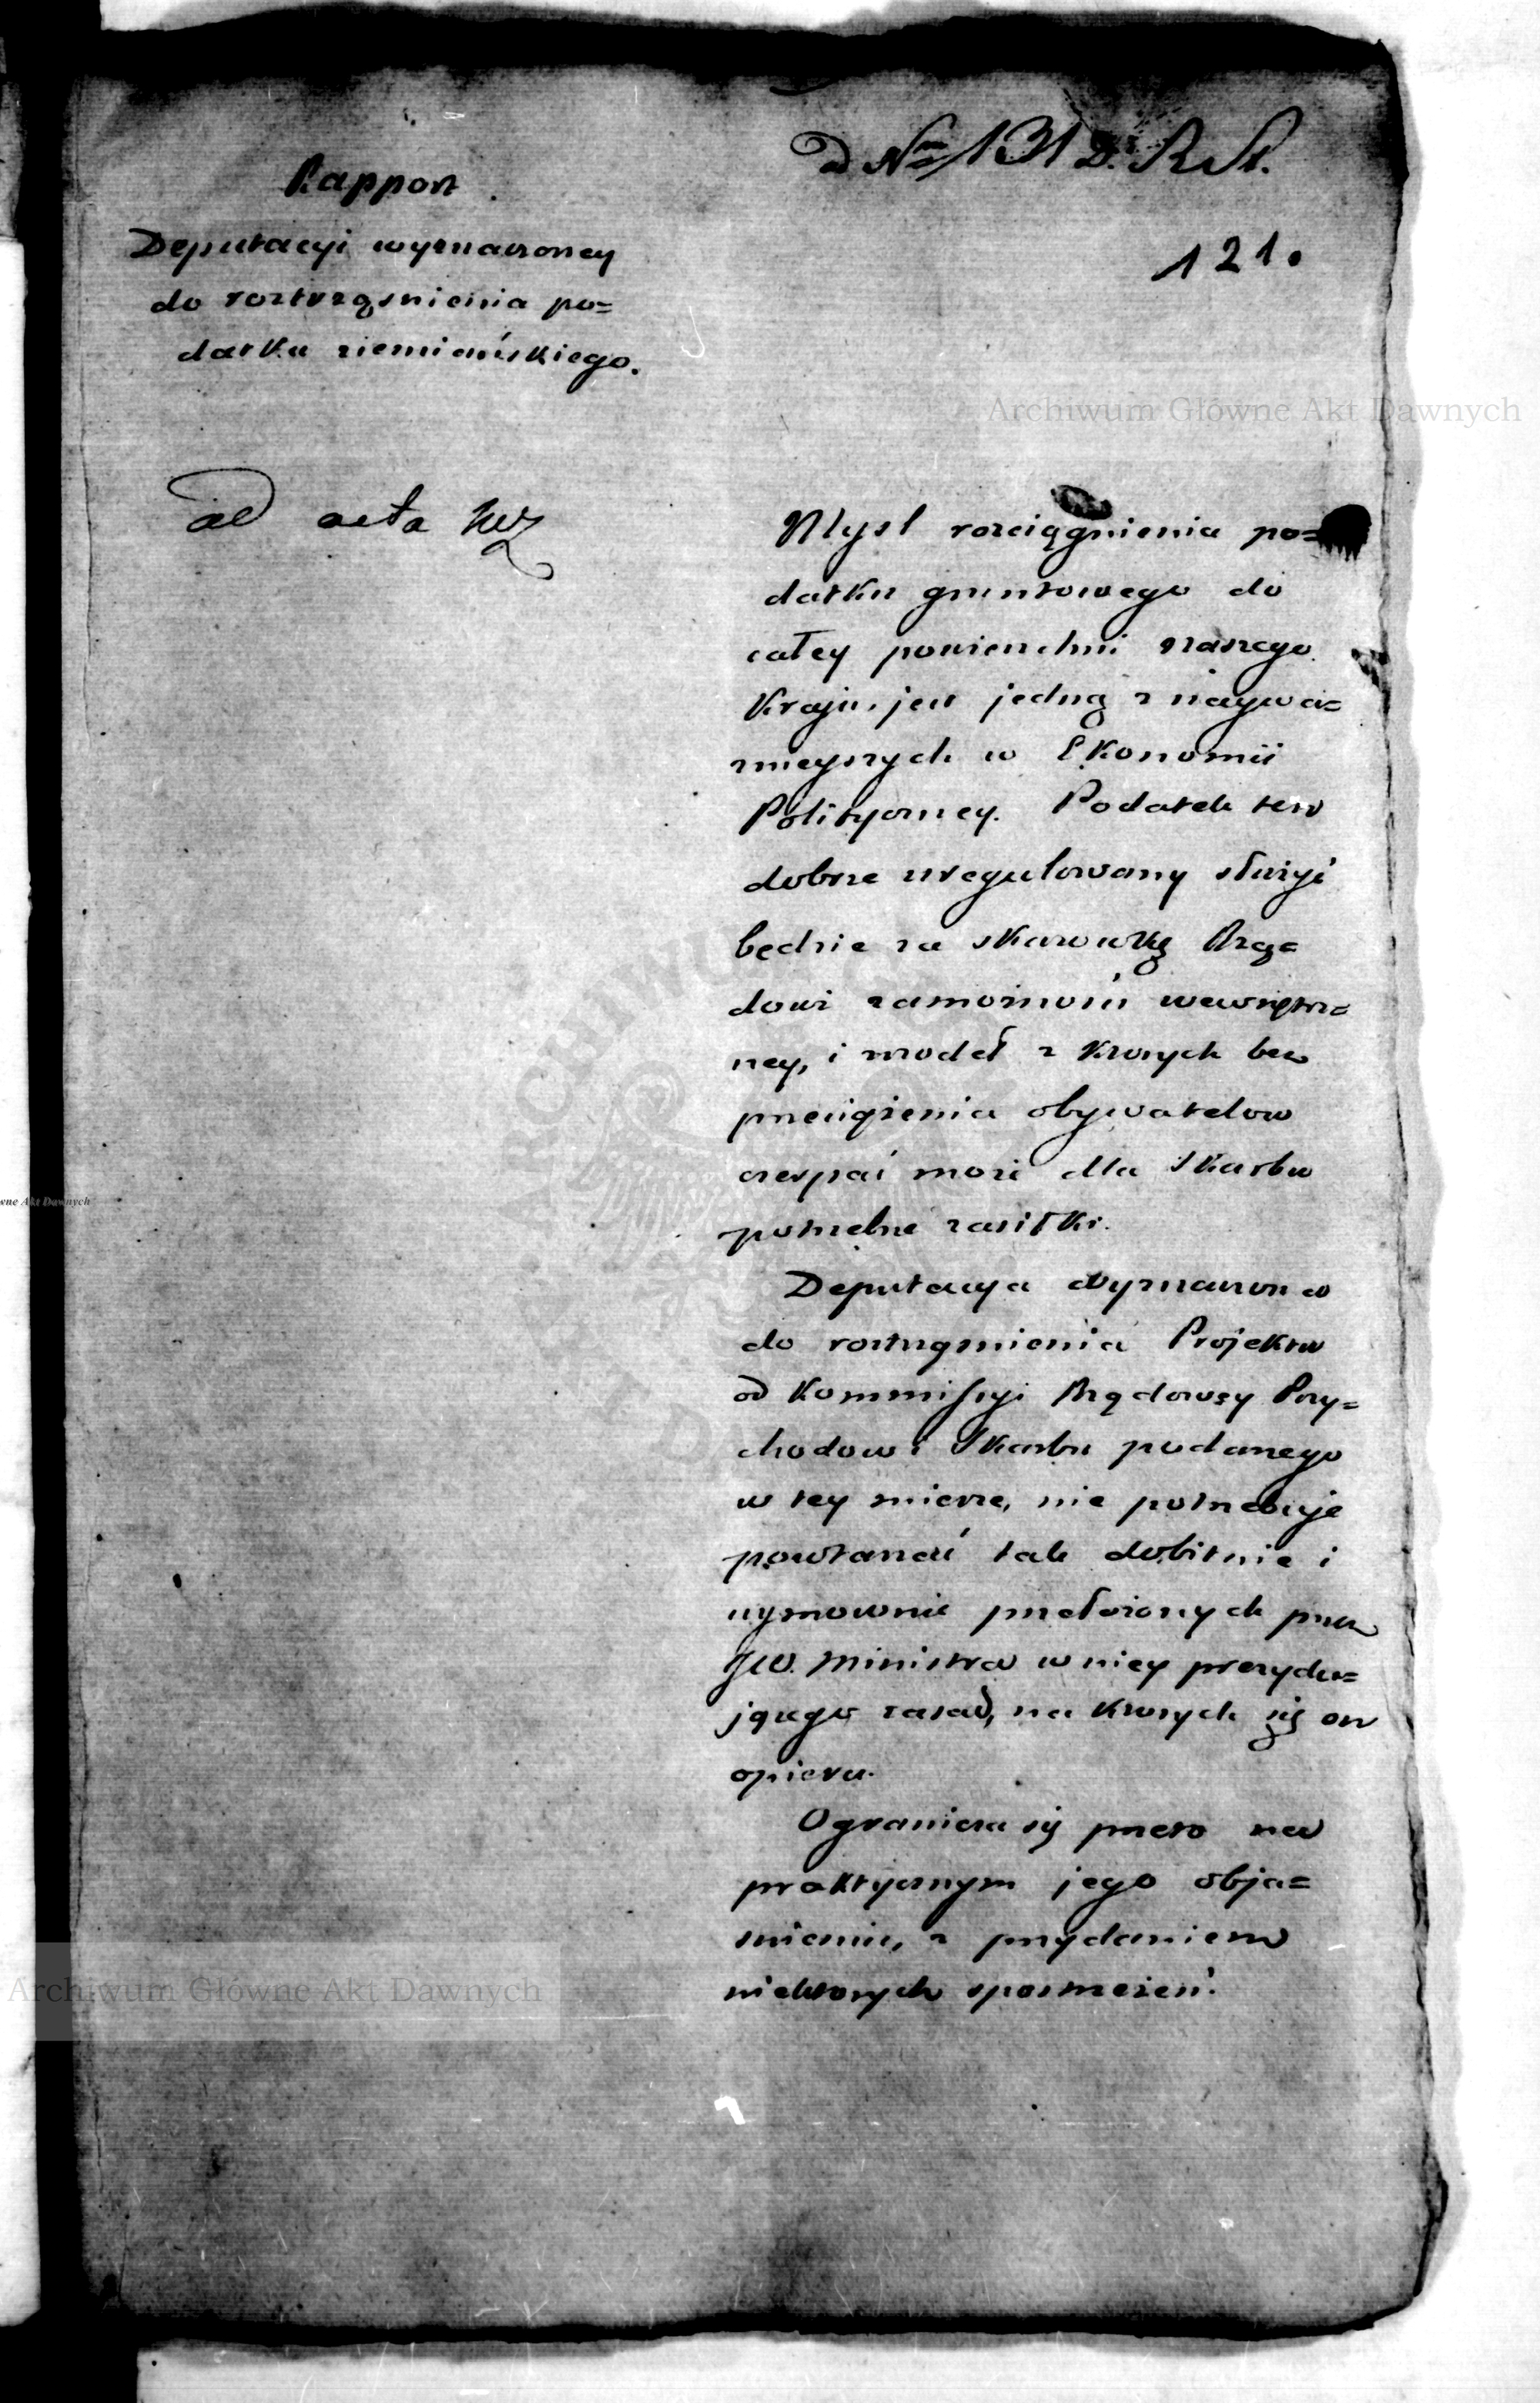 ad Nrm 131 D. R. St.
121.
Rapport
Deputacyi wyznaczoney
do roztrząśnienia po=
datku ziemiańskiego.
ad acta
Mysl rozciągnienia po=
datku gruntowego do
całey powierzchni naszego
Kraju, jest jedną z naywa=
znieyszych w Ekonomii
Polityczney. Podatek ten
dobrze uregulowany służyć
będzie za skazowkę Rzą=
dowi zamożności wewnętrz=
ney, i zrodeł z ktorych bez
przeciążenia obywatelow
czerpać może dla Skarbu
potrzebne zasiłki.
Deputacya wyznaczona
do roztrząśnienia Projektu
od Kommissyi Rządowey Przy=
chodow i Skarbu podanego
w tey mierze, nie potrzebuje
powtarzać tak dobitnie i
wymownie przełożonych przez
JW. Ministra w niey prezydu=
jącego zasad, na ktorych się on
opiera.
Ogranicza się przeto na
praktycznym jego obja=
snieniu, z przydaniem
niektorych spostrzeżeń.
Archiwum Główne Akt Dawnych
Archiwum Główne Akt Dawnych
wne Akt Dawnych